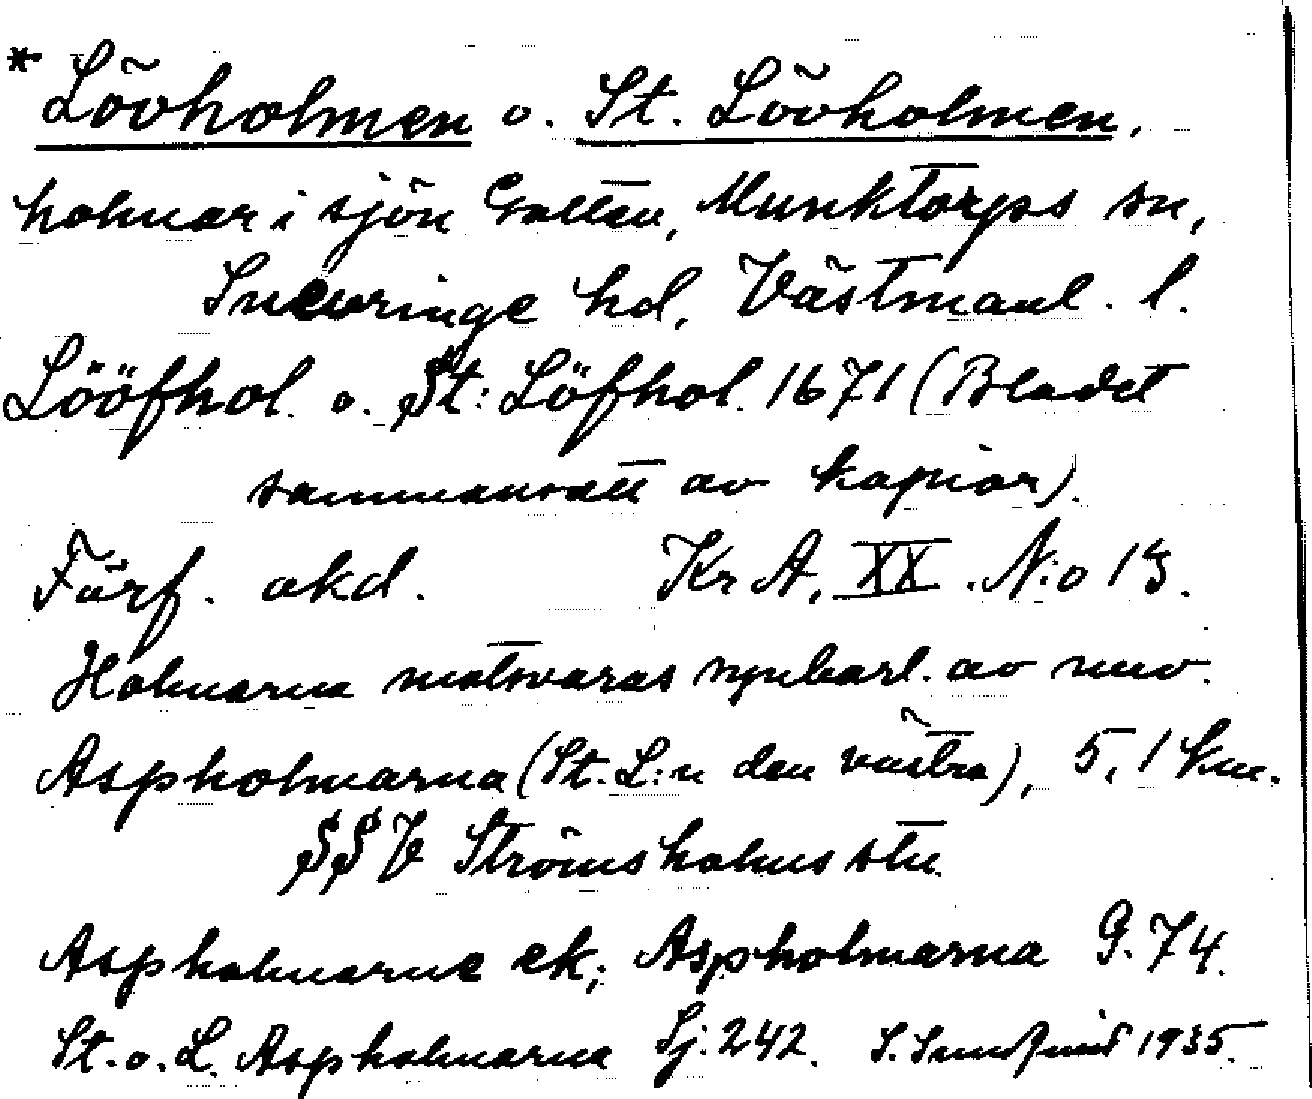 * Lövholmen o. St. Lövholmen,
holmar i sjön Galten, Munktorps sn,
Snevringe hd, Västmanl. l.
Lööfhol. o. St: Löfhol. 1671 (Bladet
sammansatt av kopior).
Förf. okd. Kr A, XX. N:o 13.
Holmarna motsvaras synbarl. av nuv.
Aspholmarna (St. L:n den västra), 5,1 km.
SSV Strömsholms stn
Aspholmarne ek; Aspholmarna G. 74.
St. o. L. Aspholmarna Sj. 242. S. 1935.